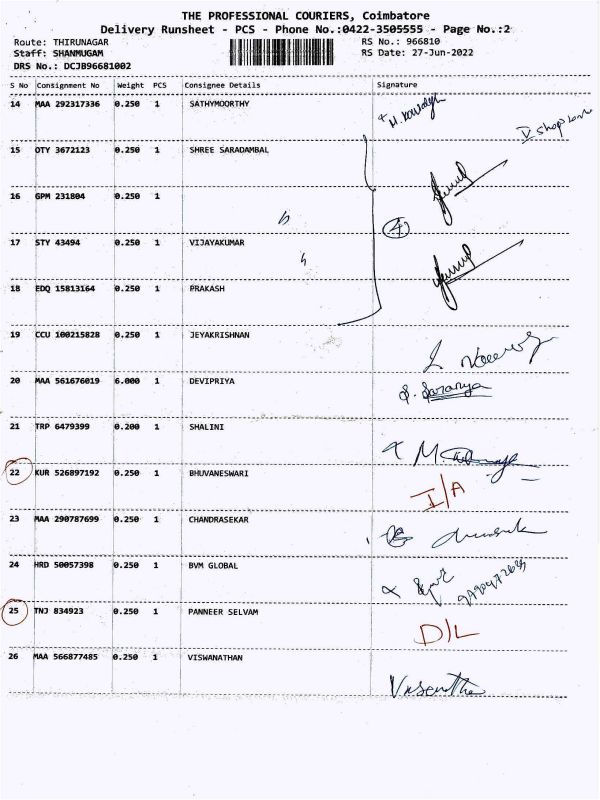 THE PROFESSIONAL COURIERS, Coimbatore
Delivery Runsheet - PCS - Phone No.:0422-3505555 - Page No.:2
Route: THIRUNAGAR RS No.: 966810
Staff: SHANMUGAM RS Date: 27-Jun-2022
DRS No.: DCJB96681002
S No Consignment No Weight PCS Consignee Details Signature
14 MAA 292317336 0.250 1 SATHYMOORTHY
15 OTY 3672123 0.250 1 SHREE SARADAMBAL
16 GPM 231804 0.250 1
4
17 STY 43494 0.250 1 VIJAYAKUMAR
18 EDQ 15813164 0.250 1 PRAKASH
19 CCU 100215828 0.250 1 JEYAKRISHNAN
20 MAA 561676019 6.000 1 DEVIPRIYA S. Saranya
21 TRP 6479399 0.200 1 SHALINI
22 KUR 526897192 0.250 1 BHUVANESWARI I/A
23 MAA 290787699 0.250 1 CHANDRASEKAR
24 HRD 50057398 0.250 1 BVM GLOBAL
25 TNJ 834923 0.250 1 PANNEER SELVAM D/L
26 MAA 566877485 0.250 1 VISWANATHAN Vasantha